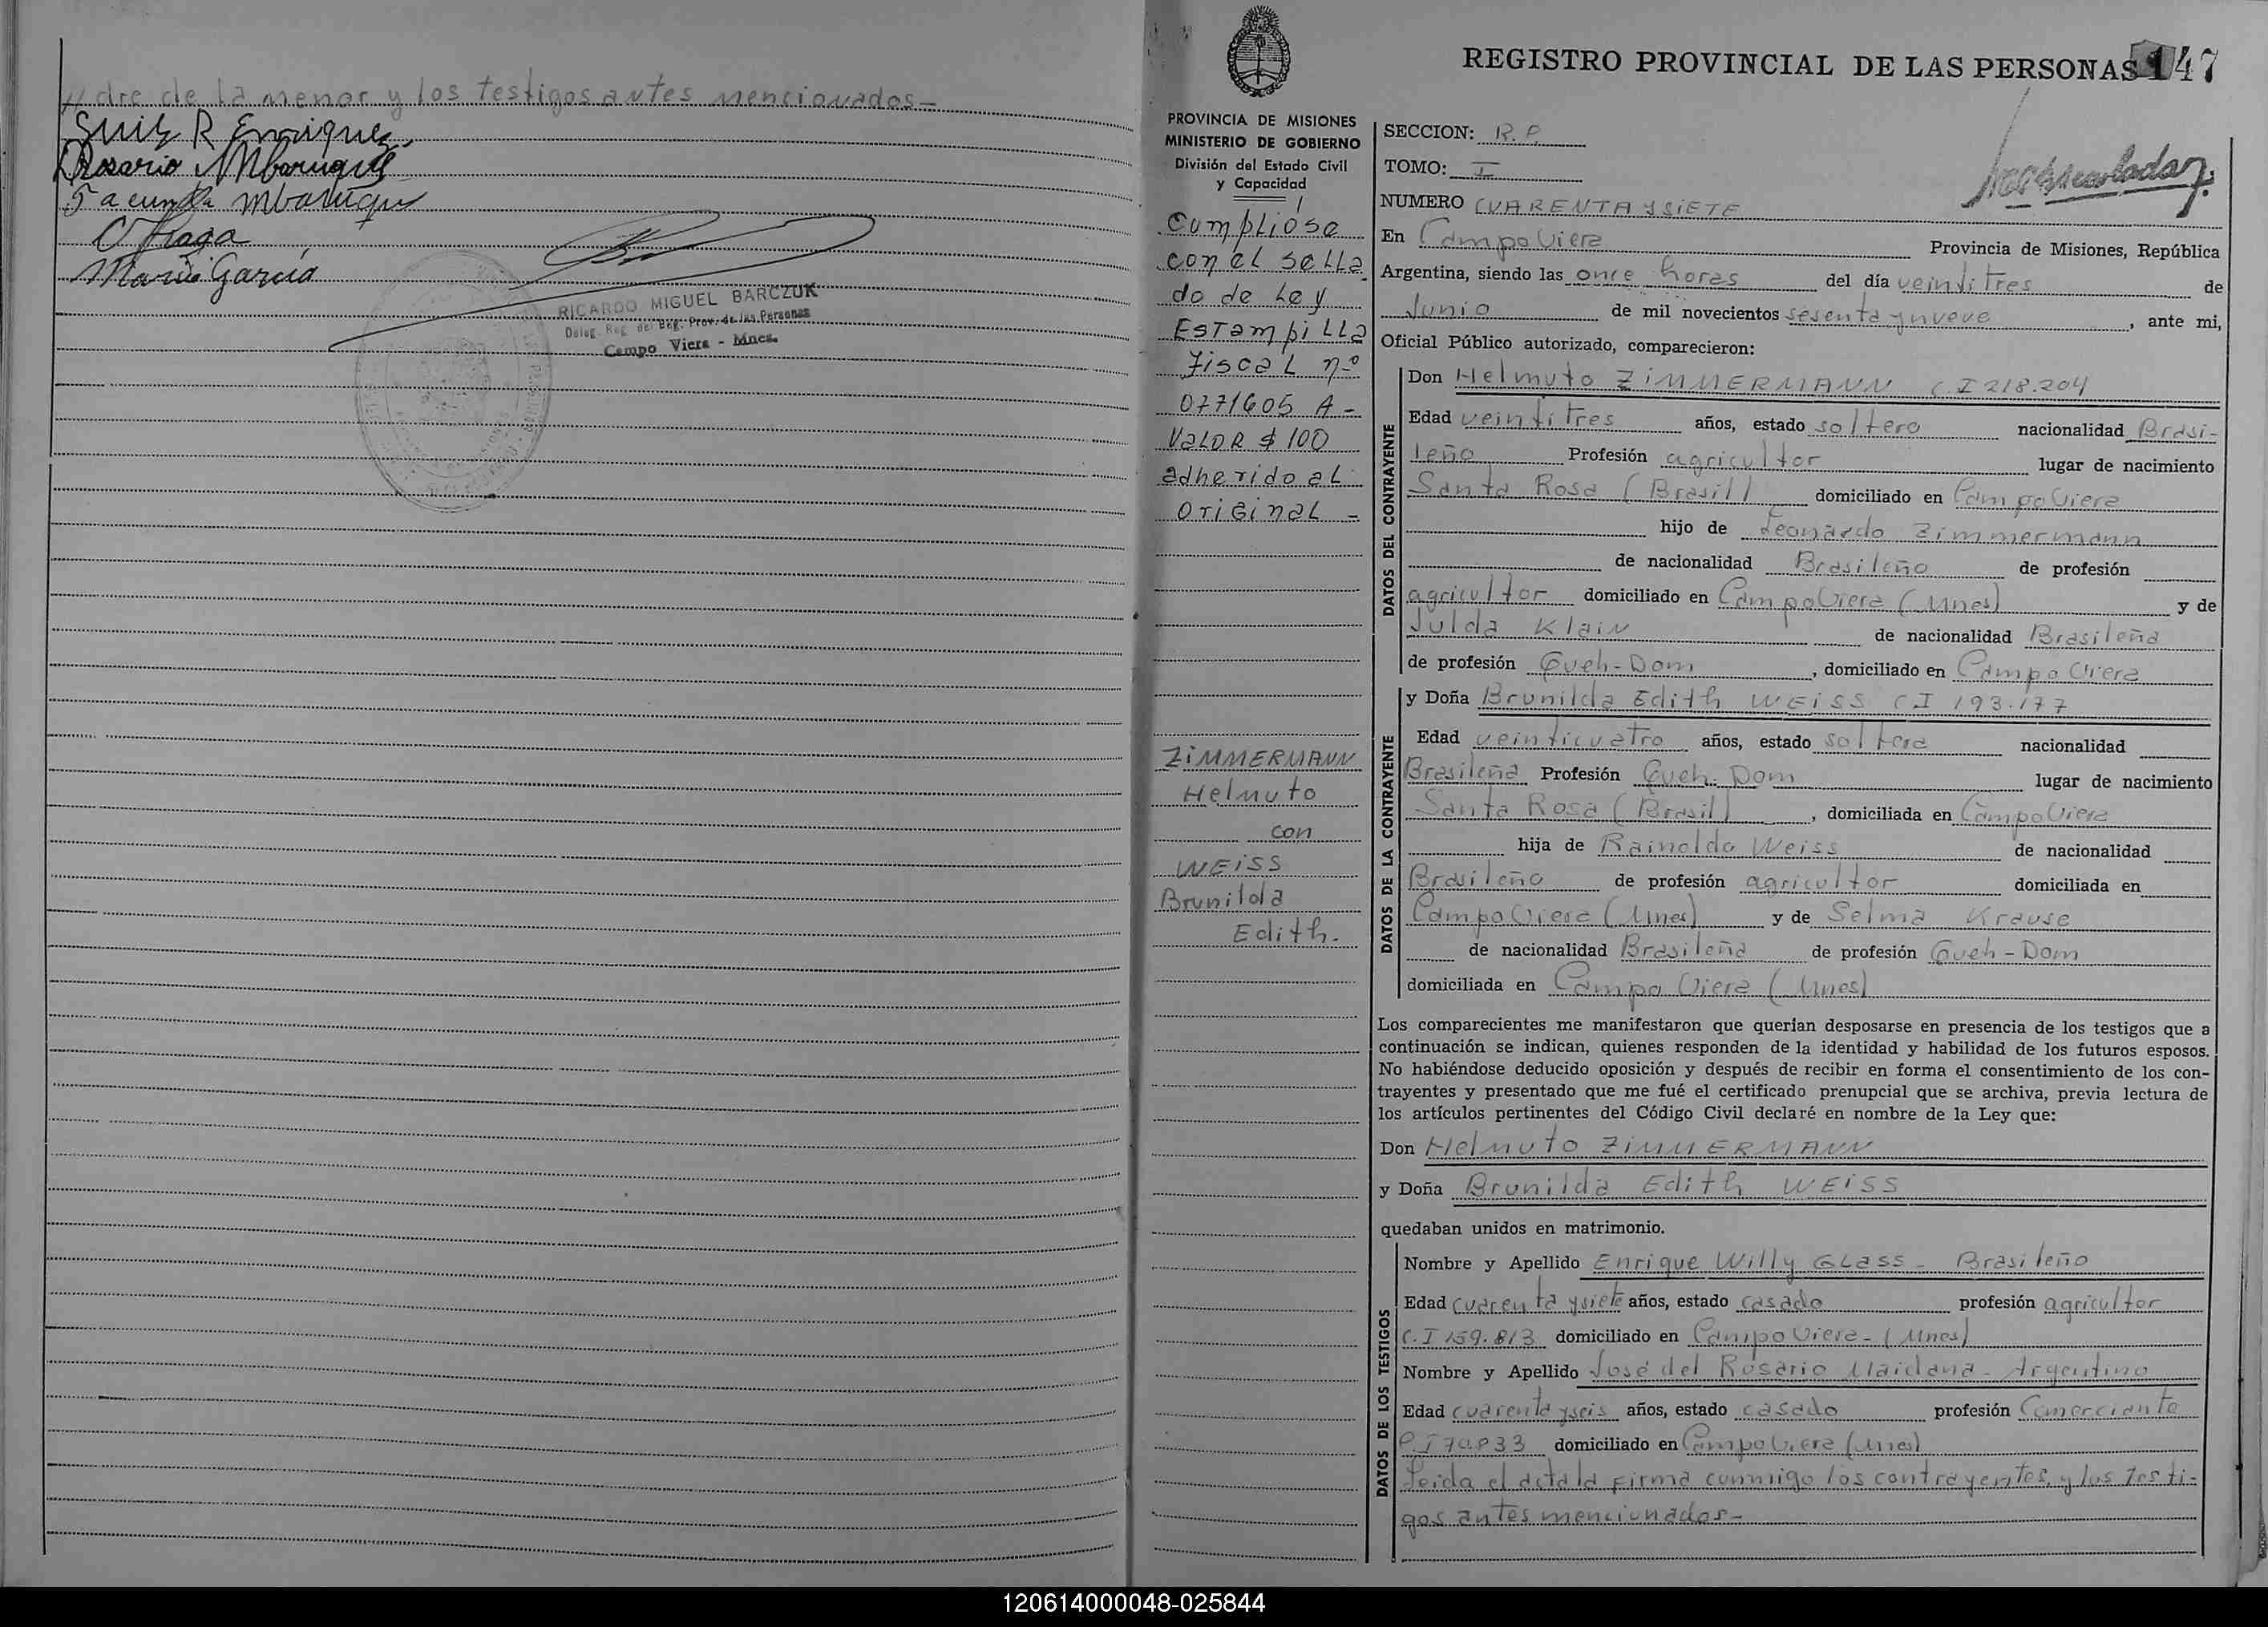 //dre de la menor y los testigos antes mencionados—
Luis R Enriquez
Rosario Mbarugui
Facunda Mbarugui
Fraga
Mario García
RICARDO MIGUEL BARCZUK
Deleg. Reg. del Reg. Prov. de las Personas
Campo Viera - Mnes.
REGISTRO PROVINCIAL DE LAS PERSONAS 147
PROVINCIA DE MISIONES
MINISTERIO DE GOBIERNO
División del Estado Civil
y Capacidad
Cumplióse
con el sella
do de Ley
Estampilla
Fiscal nº
0771605 A -
Valor $ 100
adherido al
original -
ZIMMERMANN
Helmuto
con
WEISS
Brunilda
Edith.
SECCION: R.P.
TOMO: I
NUMERO CUARENTA y SIETE
En Campo Viera Provincia de Misiones, República
Argentina, siendo las once horas del día veintitres de
Junio de mil novecientos sesenta y nueve, ante mi,
Oficial Público autorizado, comparecieron:
DATOS DEL CONTRAYENTE
Don Helmuto ZIMMERMANN C.I 218.204
Edad veintitres años, estado soltero nacionalidad Brasi-
leño Profesión agricultor lugar de nacimiento
Santa Rosa (Brasil) domiciliado en Campo Viera
hijo de Leonardo Zimmermann
de nacionalidad Brasileño de profesión
agricultor domiciliado en Campo Viera (Mnes) y de
Julda Klain de nacionalidad Brasileña
de profesión Queh-Dom, domiciliado en Campo Viera
DATOS DE LA CONTRAYENTE
y Doña Brunilda Edith WEISS C.I 193.177
Edad veinticuatro años, estado soltera nacionalidad
Brasileña Profesión Queh. Dom lugar de nacimiento
Santa Rosa (Brasil), domiciliada en Campo Viera
hija de Rainoldo Weiss de nacionalidad
Brasileño de profesión agricultor domiciliada en
Campo Viera (Mnes) y de Selma Krause
de nacionalidad Brasileña de profesión Queh-Dom
domiciliada en Campo Viera (Mnes)
Los comparecientes me manifestaron que querían desposarse en presencia de los testigos que a
continuación se indican, quienes responden de la identidad y habilidad de los futuros esposos.
No habiéndose deducido oposición y después de recibir en forma el consentimiento de los con-
trayentes y presentado que me fué el certificado prenupcial que se archiva, previa lectura de
los artículos pertinentes del Código Civil declaré en nombre de la Ley que:
Don Helmuto ZIMMERMANN
y Doña Brunilda Edith WEISS
quedaban unidos en matrimonio.
DATOS DE LOS TESTIGOS
Nombre y Apellido Enrique Willy GLASS - Brasileño
Edad cuarenta y siete años, estado casado profesión agricultor
C.I 159.813 domiciliado en Campo Viera - (Mnes)
Nombre y Apellido José del Rosario Maidana - Argentino
Edad cuarenta y seis años, estado casado profesión Comerciante
domiciliado en Campo Viera (Mnes)
Leida el acta la firma conmigo los contrayentes, y los testi-
gos antes mencionados-
120614000048-025844